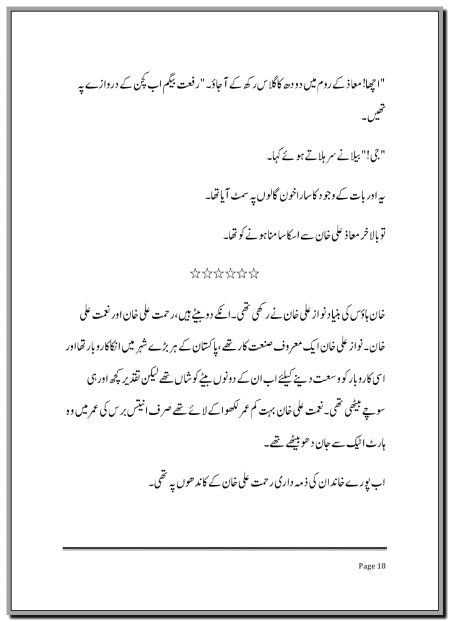 "اچھا! معاذ کے روم میں دودھ کا گلاس رکھ کے آجاؤ۔" رفعت بیگم اب کچن کے دروازے پہ
تھیں۔
"جی!" بیلا نے سر ہلاتے ہوئے کہا۔
یہ اور بات کے وجود کا سارا خون گالوں پہ سمٹ آیا تھا۔
تو بالاخر معاذ علی خان سے اسکا سامنا ہونے کو تھا۔
☆☆☆☆☆☆
خان ہاؤس کی بنیاد نواز علی خان نے رکھی تھی۔ انکے دو بیٹے ہیں، رحمت علی خان اور نعمت علی
خان۔ نواز علی خان ایک معروف صنعت کار تھے، پاکستان کے ہر بڑے شہر میں انکا کاروبار تھا اور
اسی کاروبار کو وسعت دینے کیلئے اب ان کے دونوں بیٹے کوشاں تھے لیکن تقدیر کچھ اور ہی
سوچے بیٹھی تھی۔ نعمت علی خان بہت کم عمر لکھوا کے لائے تھے صرف انتیس برس کی عمر میں وہ
ہارٹ اٹیک سے جان دھو بیٹھے تھے۔
اب پورے خاندان کی ذمہ داری رحمت علی خان کے کاندھوں پہ تھی۔
Page 18